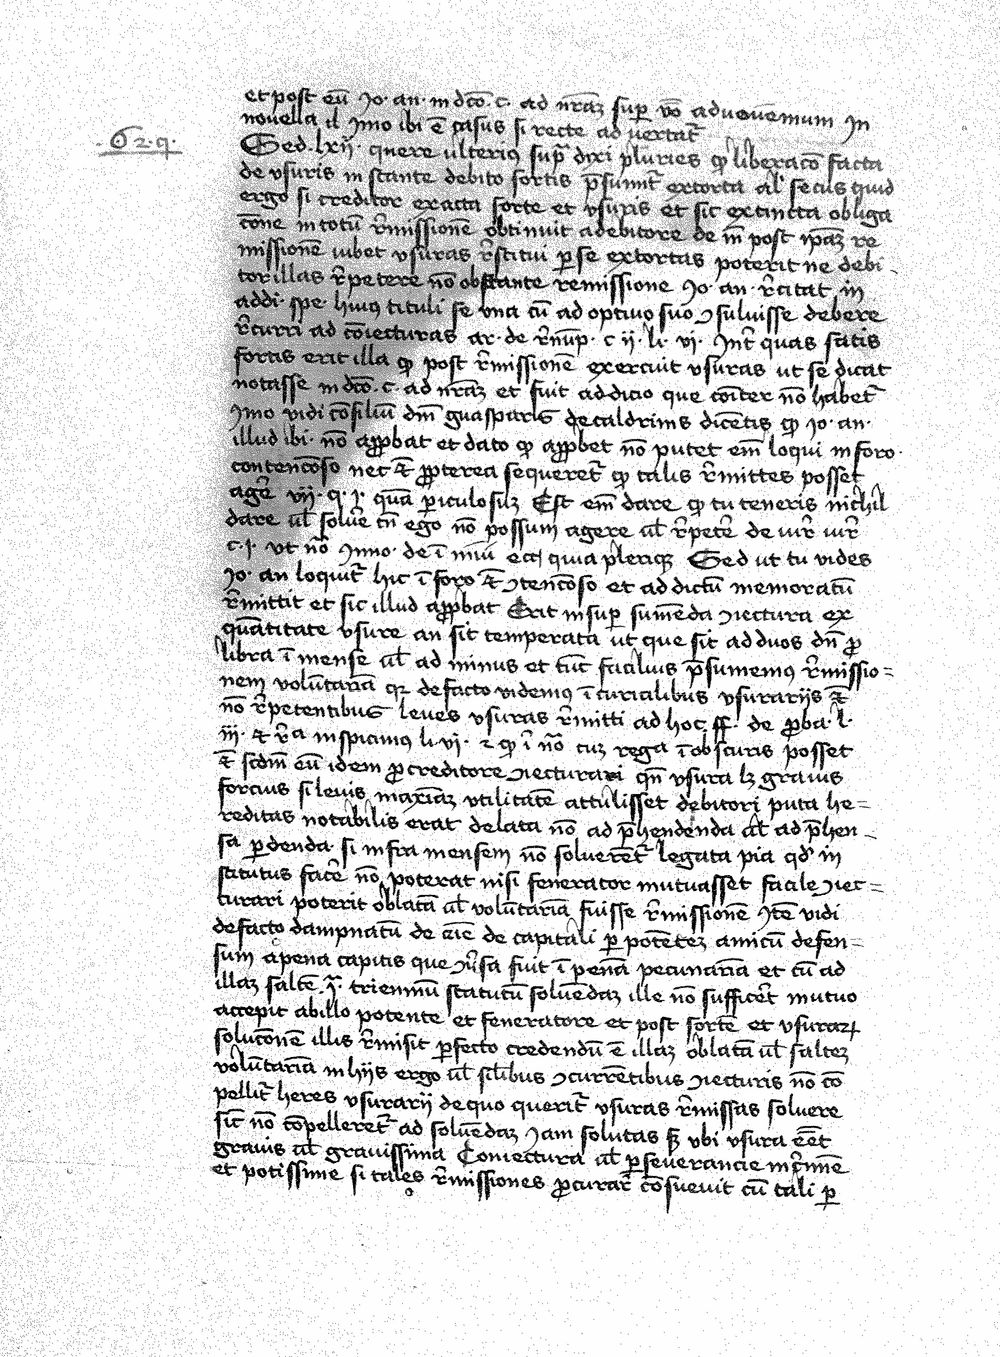 et post eū Jo· an· in dc̄o· c· ad nr̄aꝫ sup̱ vō advovemum In
novella il Imo ibi ē casus si recte ad vertat᷑
·62·q̄·
Sed· lxij· quere ulterius sup̄ dixi pluries ꝙ liberacō facta
de vsuris in stante debito sortis p̄sumit᷑ extorta al' secus quid
ergo si creditor exacta sorte et vsuris et sic extincta obliga
cōne in totū r̄missionē obtinuit a debitore de in̄ post ip̄aꝫ re
missionē iubet vsuras r̄stitui ꝑ se extortas poterit ne debi-
tor illas r̄petere nō obstante remissione Jo· an· r̄citat in
addi· spe· huiꝰ tituli se vna cū ad optivo suo ꝯsuluisse debere
r̄curri ad cōiecturas ar· de r̄nūp· c ij· li· vi· Int᷑ quas satis
fortis erit illa ꝙ post r̄missionē exercuit vsuras ut se dicat
notasse in dc̄o· c· ad nr̄aꝫ et fuit addicio que cōiter nō habet᷑
Imo vidi cōsiliū dn̄i guasparis de caldrinis dicētis ꝙ Jo· an·
illud ibi· nō aꝓbat et dato ꝙ aꝓbet nō putet em̄ loqui in foro·
contencōso nec &̄ ꝓpterea sequeret᷑ ꝙ talis r̄mittes posset
ager̄ vij· q· j· quā ꝑiculosuꝫ Est em̄ dare ꝙ tu teneris nichil
dare ul̄ solu̅e cū ego nō possum agere ul̄ r̄peter̄ de iur̄ iur̄
c· j· ut nō Inno· de ī miū ecc̄ quia pleriqꝫ Sed ut tu vides
Jo· an loquit᷑ hic ī foro &̄ ꝯtencōso et ad dictū memoratū
r̄mittit et sic illud aꝓbat Erit insuꝑ sumēda ꝯiectura ex
quātitate vsure an sit temperata ut que sit ad duos dn̄ ꝓ
libra ī mense ul̄ ad minus et tūc facilius p̄sumemꝰ r̄missio=
nem volūtariā qꝫ de facto videmꝰ ī curialibus vsurarijs &̄
nō r̄petentibus leves vsuras r̄mitti ad hoc· ff· de ꝓba· l·
iij· & r̄a inspicimꝰ li· vi· 2 ꝙ ī nō cuꝫ rega ī obscuris posset
&̄ scdm̄ eū idem ꝓ creditore ꝯiecturari qn̄ vsura lꝫ gravis
forcius si levis maximāꝫ vtilitatē attulisset debitori puta he=
reditas notabilis erat delata nō ad p̄hendenda ul̄ ad p̄hen-
sa ꝑdenda· si infra mensem nō solveret᷑ legata pia qd̄ in
stitutus facer̄ nō poterat nisi fenerator mutuasset facile ꝯiec=
turari poterit oblatā ul̄ volūtariā fuisse r̄missionē Itē vidi
de facto dampnatū de c̄ie de capitali ꝑ potētez amicū defen=
sum a pena capitis que ꝯu̅sa fuit ī penā pecuniariā et cū ad
illaꝫ saltē īf᷑ trienniū statutū solvēdaꝫ ille nō sufficer̄t mutuo
accepit ab illo potente et feneratore et post sortē et vsuraꝝ
solucōnē illis r̄misit ꝑfecto credendū ē illaꝫ oblatā ul̄ saltez
volūtariā in hijs ergo ul̄ silibus ꝯcurrētibus ꝯiecturis nō cō
pellit᷑ heres vsurarij de quo querit᷑ vsuras r̄missas solvere
sic̄ nō cōpelleret᷑ ad solvēdaꝫ Iam solutas sꝫ vbi vsura eēt
gravis ul̄ gravissima Coniectura ul̄ ꝑseverancie in cr̄imīe
et potissime si tales r̄missiones ꝓcurar̄ cōsuevit cū tali ꝑ